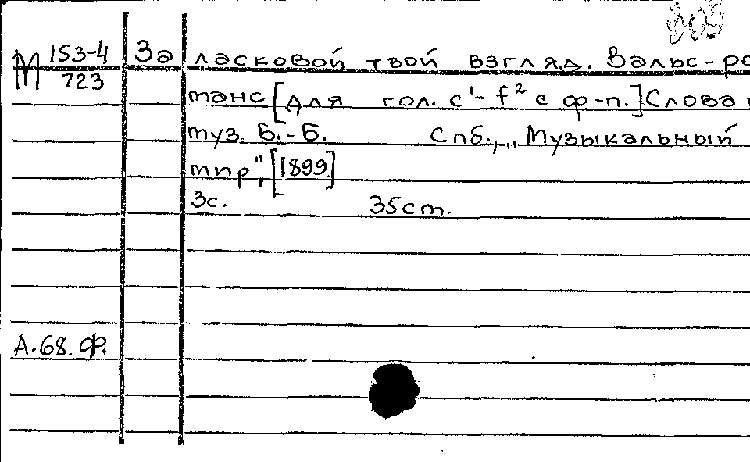 M 153-4/723 За ласковой твой взгляд. Вальс-ро
манс [для гол. c¹- f² с ф-п.] Слова и
муз. Б.-Б. Спб., "Музыкальный
мир", [1899]
3с. 35cm.
А.68.Ф.